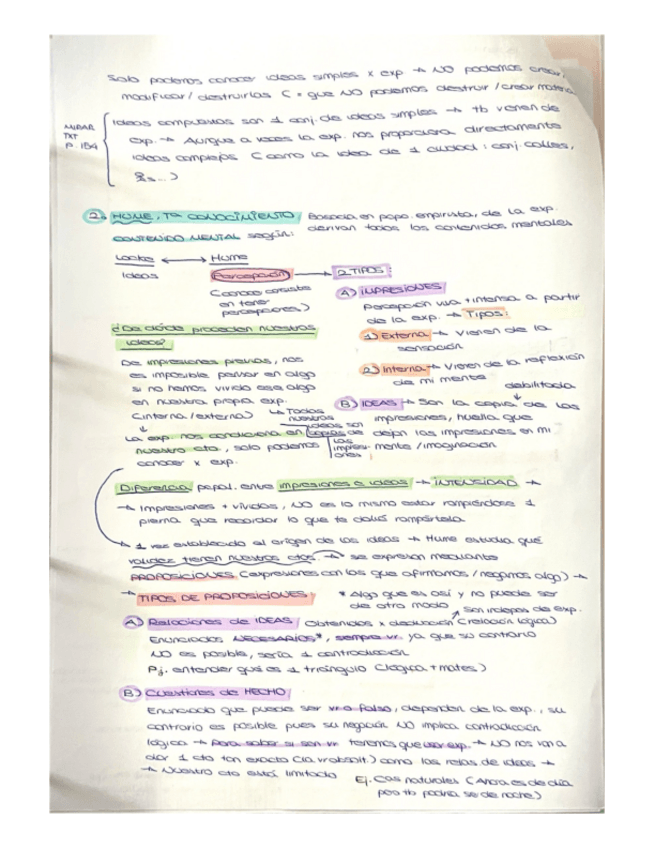 Solo podemos conocer ideas simples x exp → NO podemos crear,
modificar / destruirlas (= que NO podemos destruir / crear materia
MIRAR
TXT
P. 184
Ideas compuestas son 1 conj. de ideas simples → tb vienen de
exp. → Aunque a veces la exp. nos proporciona directamente
ideas complejas (como la idea de 1 ciudad: conj. calles,
...)
2. HUME, Tª CONOCIMIENTO
Basada en papa. empirista, de la exp.
derivan todos los contenidos mentales
CONTENIDO MENTAL según:
Locke ↔ Hume
Ideas
Percepción → 2 TIPOS:
Conocer consiste
en tener
percepciones)
A) IMPRESIONES
Percepción viva + intensa a partir
de la exp. → Tipos:
1) Externa → vienen de la
sensación
2) Interna → Vienen de la reflexión
de mi mente
debilitada
B) IDEAS → Son la copia de las
impresiones, huella que
dejan las impresiones en mi
mente / imaginación
¿De dónde proceden nuestras
ideas?
De impresiones previas, nos
es imposible pensar en algo
si no hemos vivido ese algo
en nuestra propia exp.
(interna / externa)
↳ Todas
nuestras
ideas son
copias de
las
impresiones
↓
La exp. nos condiciona en
nuestro cto, solo podemos
conocer x exp.
Diferencia papal. entre impresiones e ideas → INTENSIDAD →
→ Impresiones + vívidas, NO es lo mismo estar rompiéndose 1
pierna que recordar lo que te dolió rompértela
→ 1 vez establecido el origen de las ideas → Hume estudia qué
validez tienen nuestros ctos. → se expresan mediante
PROPOSICIONES (expresiones con las que afirmamos / negamos algo) →
→ TIPOS DE PROPOSICIONES:
* Algo que es así y no puede ser
de otro modo
son indeps de exp.
A) Relaciones de IDEAS
Obtenidos x deducción (relación lógica)
Enunciados NECESARIOS*, siempre vr. ya que su contrario
NO es posible, sería 1 contradicción
Pj. entender qué es 1 triángulo (lógica + mates)
B) Cuestiones de HECHO
Enunciado que puede ser vr o falso, dependen de la exp., su
contrario es posible pues su negación NO implica contradicción
lógica → Para saber si son vr tenemos que usar exp. → NO nos van a
dar 1 cto tan exacto (la vr absolt.) como las relas de ideas →
→ Nuestro cto está limitado
Ej. Cas naturales (Ahora es de día
pero tb podría ser de noche)